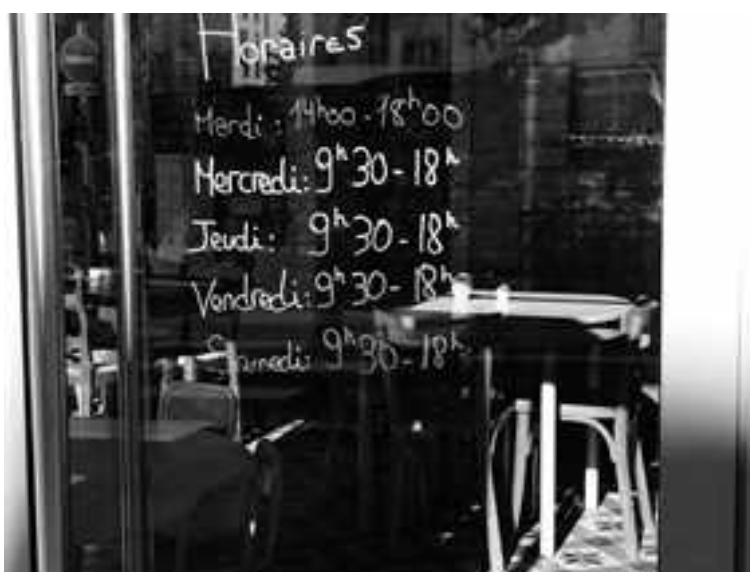 Horaires
Mardi : 14h00 - 18h00
Mercredi: 9h30 - 18h
Jeudi : 9h30 - 18h
Vendredi: 9h30 - 18h
Samedi: 9h30 - 18h